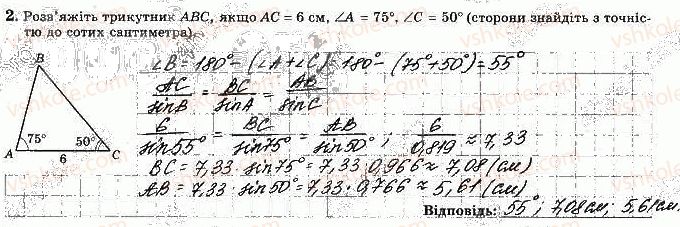 2. Розв'яжіть трикутник ABC, якщо AC = 6 см, ∠A = 75°, ∠C = 50° (сторони знайдіть з точніс-
тю до сотих сантиметра).
∠B = 180° − (∠A + ∠C) = 180° − (75° + 50°) = 55°
AC/sinB = BC/sinA = AB/sinC
6/sin55° = BC/sin75° = AB/sin50° ; 6/0,819 ≈ 7,33
BC = 7,33 · sin75° = 7,33 · 0,966 ≈ 7,08 (см)
AB = 7,33 · sin50° = 7,33 · 0,766 ≈ 5,61 (см)
Відповідь: 55°; 7,08 см; 5,61 см.
B
75°
50°
A
6
C